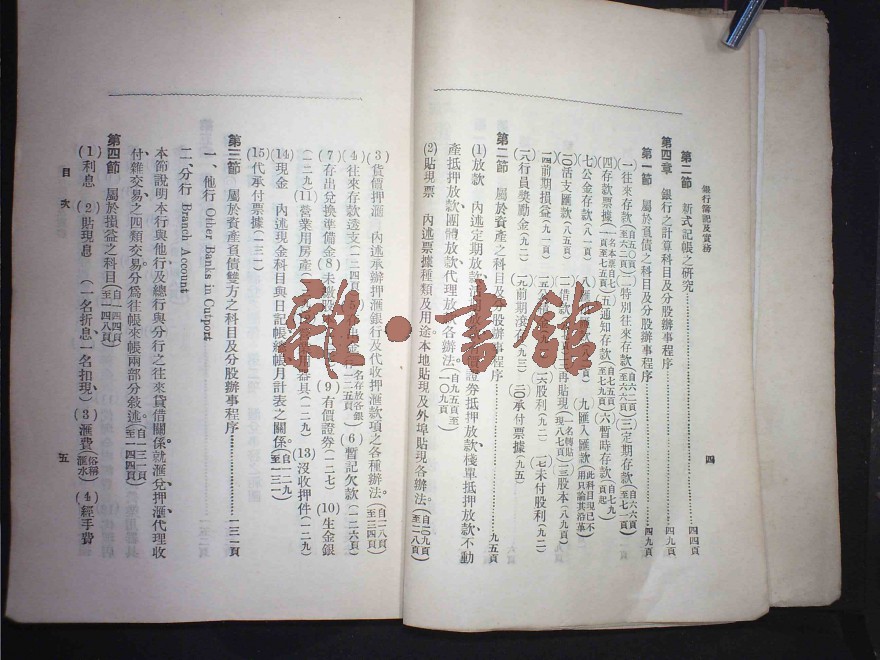 銀行簿記及實務
四
第二節 新式記帳之研究 四四頁
第四章 銀行之計算科目及分股辦事程序 四九頁
第一節 屬於負債之科目及分股辦事程序 四九頁
(一)往來存款(自五〇頁至六二頁)(二)特別往來存款(自六二頁至六六頁)(三)定期存款(自六六頁至七一頁)
(四)存款票據(一名本票自七一頁至七五頁)(五)通知存款(自七五頁至七九頁)(六)暫時存款(自七九頁起)
(七)公金存款(八一頁)
(九)匯入匯款(此科目現已不用只論其沿革)
(10)活支匯款(八五頁)
再貼現(一名轉貼現八七頁)(13)股本(八九頁)
(14)前期損益(九一頁)
(16)股利(九二)(17)未付股利(九二)
(18)行員獎勵金(九二)
(20)承付票據(九五)
第二節 屬於資產之科目及分股辦事程序 九五頁
(1)放款 內述定期放款
證券抵押放款、棧單抵押放款、不動
產抵押放款、團體放款、代理放
各辦法。(自九五頁至一〇九頁)
(2)貼現票 內述票據種類及用途本地貼現及外埠貼現各辦法。(自一〇九頁至一一八頁)
(3)貨價押滙 內述承辦押滙銀行及代收押滙款項之各種辦法。(自一一八頁至一二四頁)
(4)往來存款透支(一二四頁)
(一名存放各銀
一二五頁)(6)暫記欠款(一二六頁)
(7)存出兌換準備金(8)未繳股
(9)有價證券(一二七)(10)生金銀
(一二九)(11)營業用房產
器具(一二九)(13)沒收押件(一二九)
(14)現金 內述現金科目與日記帳
帳月計表之關係。(自一二九
(15)代承付票據(一三一)
第三節 屬於資產負債雙方之科目及分股辦事程序 一三一頁
一、他行 Other Banks in Outport
二、分行 Branch Account
本節說明本行與他行及總行與分行之往來貸借關係。就滙兌、押滙、代理收
付、雜交易之四類交易分爲往帳來帳兩部分敘述。(自一三一頁至一四四頁)
第四節 屬於損益之科目(自一四四頁至一四八頁)
(1)利息 (2)貼現息 (一名折息一名扣現)(3)滙費(俗稱滙水)(4)經手費
目次
五
雜·書館